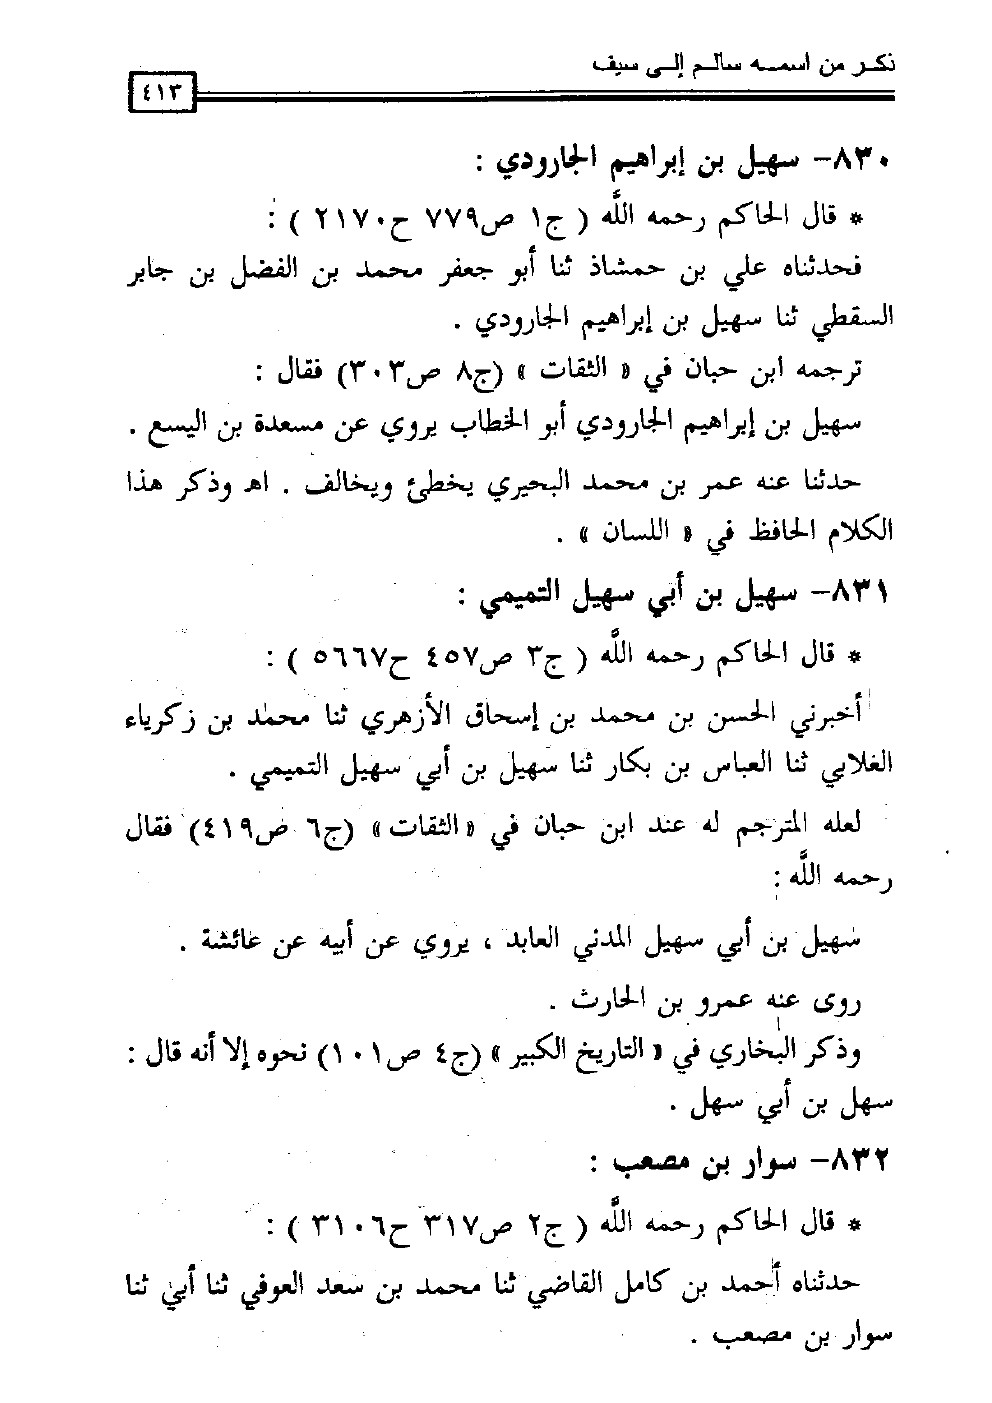 ذكر من اسمه سالم إلى سيف
٤١٣
٨٣٠- سهيل بن إبراهيم الجارودي :
* قال الحاكم رحمه اللَّه ( ج١ ص٧٧٩ ح٢١٧٠ ) :
فحدثناه علي بن حمشاذ ثنا أبو جعفر محمد بن الفضل بن جابر
السقطي ثنا سهيل بن إبراهيم الجارودي .
ترجمه ابن حبان في « الثقات » (ج٨ ص٣٠٣) فقال :
سهيل بن إبراهيم الجارودي أبو الخطاب يروي عن مسعدة بن اليسع .
حدثنا عنه عمر بن محمد البحيري يخطئ ويخالف . اهـ وذكر هذا
الكلام الحافظ في « اللسان » .
٨٣١- سهيل بن أبي سهيل التميمي :
* قال الحاكم رحمه اللَّه ( ج٣ ص٤٥٧ ح٥٦٦٧ ) :
أخبرني الحسن بن محمد بن إسحاق الأزهري ثنا محمد بن زكرياء
الغلابي ثنا العباس بن بكار ثنا سهيل بن أبي سهيل التميمي .
لعله المترجم له عند ابن حبان في «الثقات» (ج٦ ص٤١٩) فقال
رحمه اللَّه :
سهيل بن أبي سهيل المدني العابد ، يروي عن أبيه عن عائشة .
روى عنه عمرو بن الحارث .
وذكر البخاري في « التاريخ الكبير » (ج٤ ص١٠١) نحوه إلا أنه قال :
سهل بن أبي سهل .
٨٣٢- سوار بن مصعب :
* قال الحاكم رحمه اللَّه ( ج٢ ص٣١٧ ح٣١٠٦ ) :
حدثناه أحمد بن كامل القاضي ثنا محمد بن سعد العوفي ثنا أبي ثنا
سوار بن مصعب .